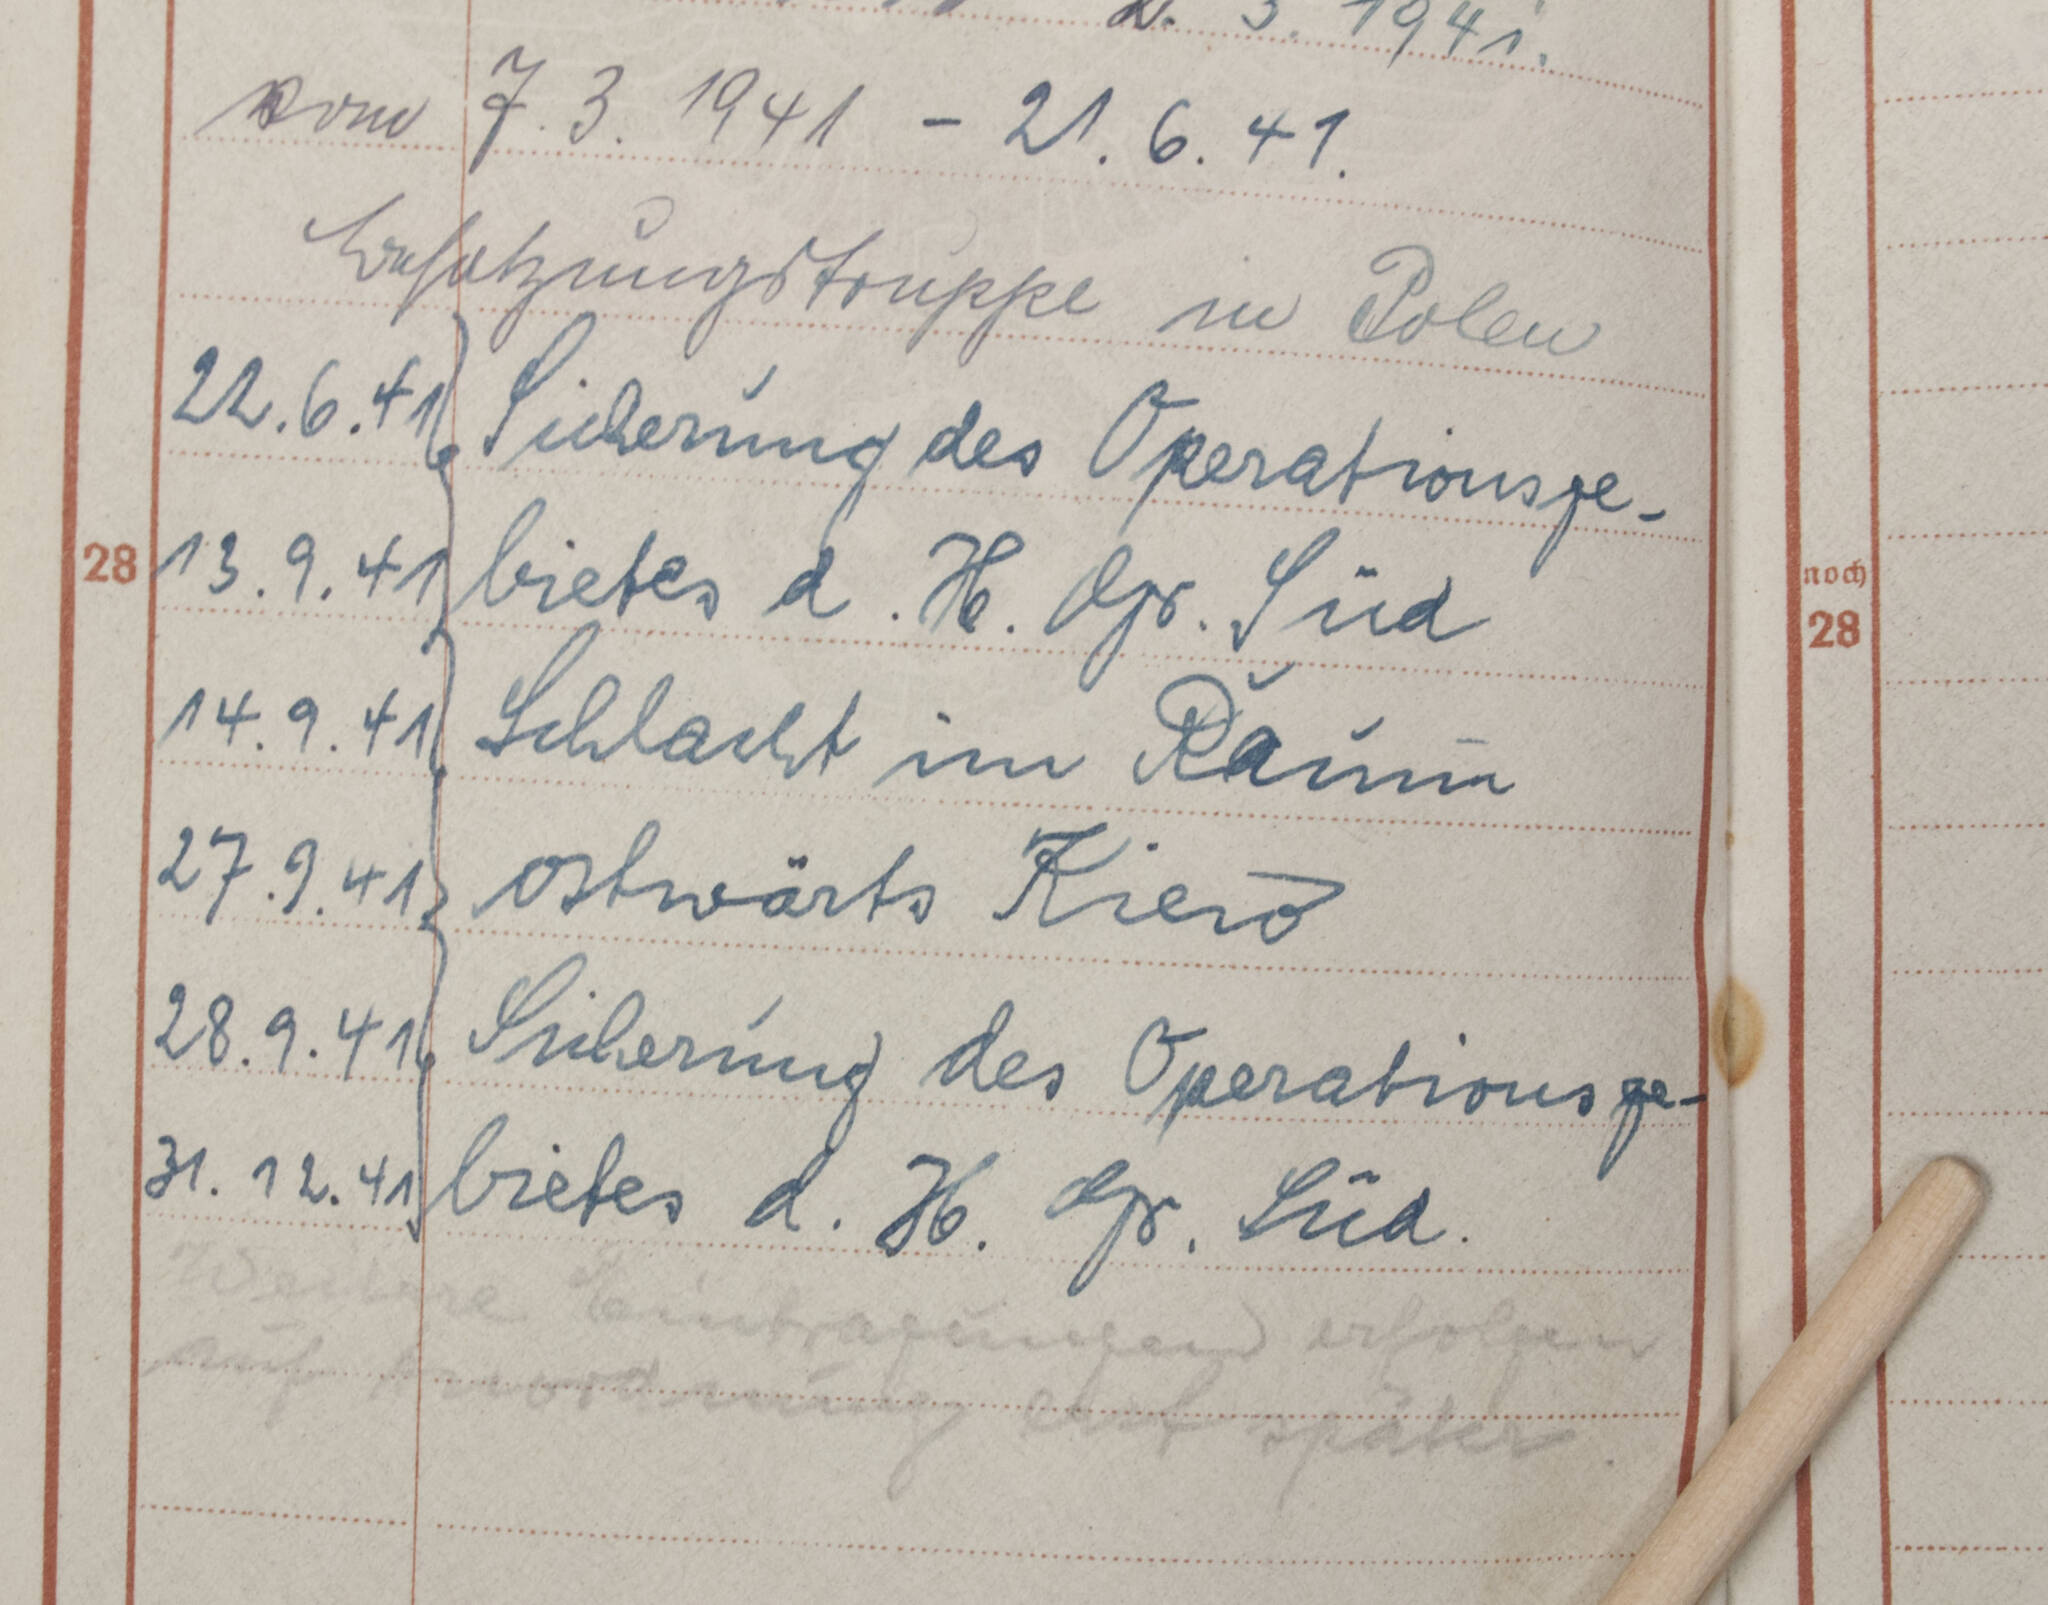 3. 1941.
vom 7. 3. 1941 - 21. 6. 41.
Besatzungstruppe in Polen
22.6.41 Sicherung des Operationsge-
28 13.9.41 bietes d. H. Gr. Süd
noch
28
14.9.41 Schlacht im Raum
27.9.41 ostwärts Kiew
28.9.41 Sicherung des Operationsge-
31.12.41 bietes d. H. Gr. Süd.
Weitere Eintragungen erfolgen
auf Anordnung erst später.